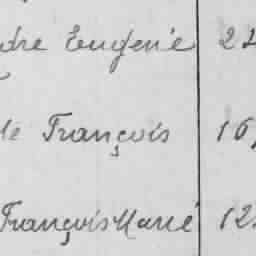 dre Eugène 22
de François 16
François Marie 12